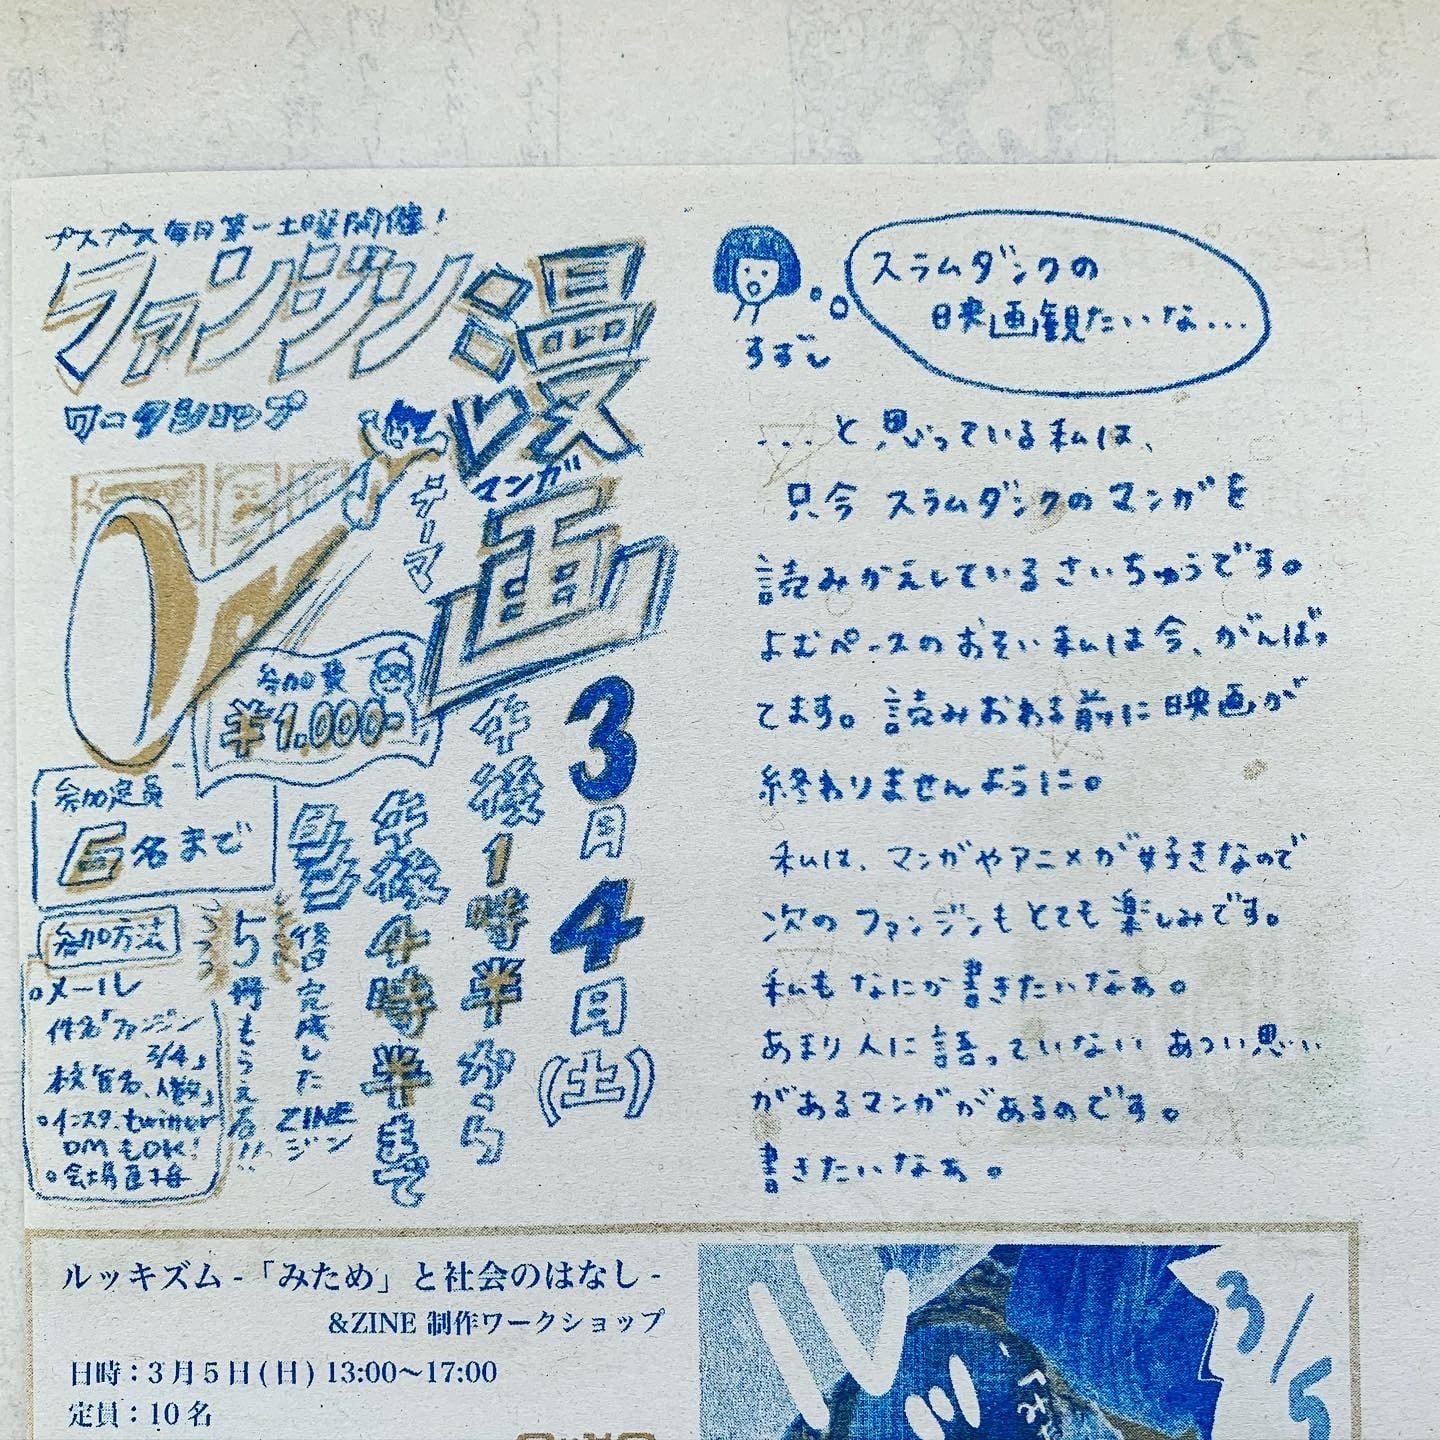 プスプス毎月第一土曜開催!
ファンジン
ワークショップ
テーマ
漫画
マンガ
参加費
¥1.000-
3月4日(土)
午後1時半から
午後4時半まで
後日完成したZINE
ジン
5冊もらえる!!
参加定員
名まで
参加方法
○メール
件名「ファンジン
3/4」
○インスタ、twitter
DMもOK!
○会場直接
すずし
スラムダンクの
映画観たいな...
...と思っている私は、
只今スラムダンクのマンガを
読みかえしているさいちゅうです。
よむペースのおそい私は今、がんばっ
てます。読みおわる前に映画が
終わりませんように。
私は、マンガやアニメが好きなので
次のファンジンもとても楽しみです。
私もなにか書きたいなぁ。
あまり人に語っていないあつい思い
があるマンガがあるのです。
書きたいなぁ。
ルッキズム-「みため」と社会のはなし-
&ZINE 制作ワークショップ
日時:3月5日(日)13:00〜17:00
定員:10名
3/5